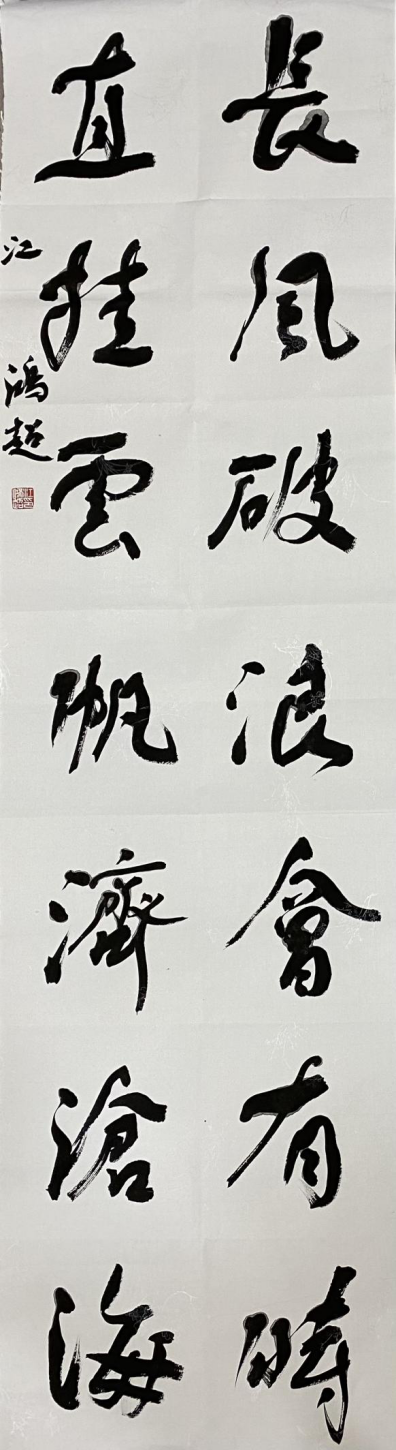 長風破浪會有時
直挂雲帆濟滄海
江鴻超